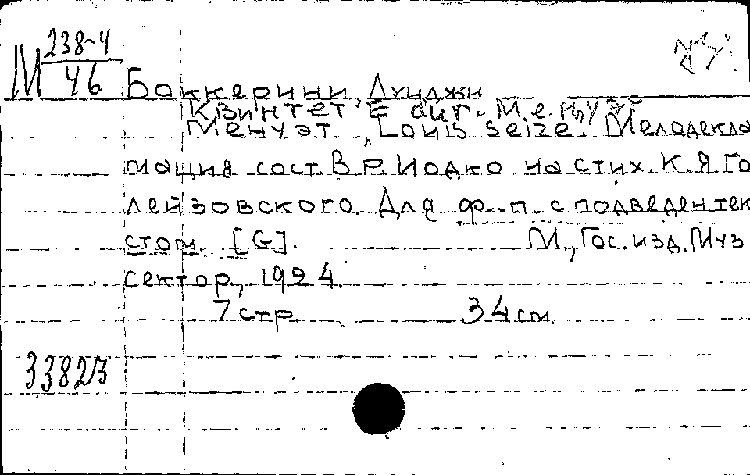 М 238-4
46
Боккерини, Луиджи
Квинтет E dur. Менуэт
Менуэт „Louis Seize. Мелодекла
мация сост. В.Р. Иодко на стих. К.Я. Го
лейзовского. Для ф.-п. с подведен тек
стом. [G]. М., Гос. изд. Муз
сектор, 1924.
7 стр 34 см.
3382/3